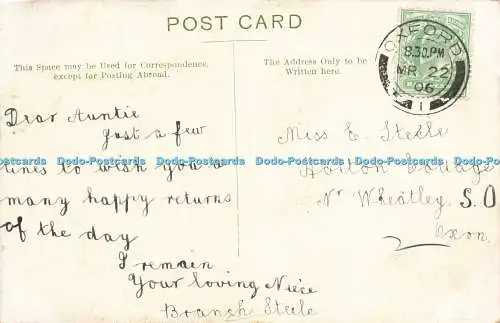 POST CARD
This Space may be Used for Correspondence,
except for Posting Abroad.
The Address Only to be
Written here.
OXFORD
8.30.PM
MR 22
06
1
Dear Auntie
Just a few
lines to wish you a
many happy returns
of the day
I remain
Your loving Niece
Steele
Miss E. Steele
Horton Cottage
Nr Wheatley, S.O
Oxon.
Dodo-Postcards Dodo-Postcards Dodo-Postcards Dodo-Postcards Dodo-Postcards Dodo-Postcards